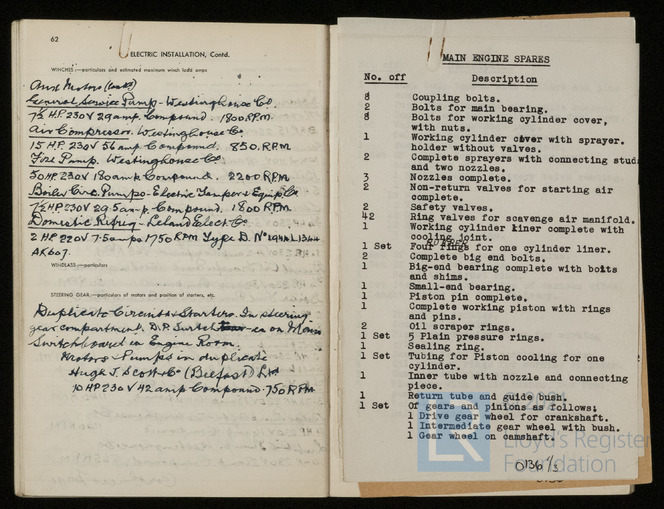 62
ELECTRIC INSTALLATION, Contd.
WINCHES:—particulars and estimated maximum winch load amps
Aux Motors (contd)
General Service Pump - Westinghouse Co.
7½ HP 230V 29 amp. Compound. 1800 RPM.
Air Compressor. Westinghouse Co.
15 HP. 230V 56 amp Compound. 850 RPM
Fire Pump. Westinghouse Co
50 HP. 230V 180 amp Compound. 2200 RPM
Boiler Circ. Pumps - Electric & Equip Co
7½ HP. 230V 29.5 amp. Compound. 1800 RPM.
Domestic Refrig - Leland Elect. Co
2 HP 220V 7.5 amps 1750 RPM Type D. No
AK607.
WINDLASS:—particulars
STEERING GEAR:—particulars of motors and position of starters, etc.
Duplicate Circuits & Starters. In steering
gear compartment. D.P. Switch on Main
Switchboard in Engine Room.
Motors & Pumps in duplicate
Hugh J. Scott & Co (Belfast) Ltd
10 HP 230V 42 amp Compound 750 RPM
MAIN ENGINE SPARES
No. off Description
8 Coupling bolts.
2 Bolts for main bearing.
8 Bolts for working cylinder cover,
with nuts.
1 Working cylinder cover with sprayer.
holder without valves.
2 Complete sprayers with connecting stud
and two nozzles.
3 Nozzles complete.
2 Non-return valves for starting air
complete.
2 Safety valves.
42 Ring valves for scavenge air manifold.
1 Working cylinder liner complete with
cooling joint.
1 Set Four rings for one cylinder liner.
2 Complete big end bolts.
1 Big-end bearing complete with bolts
and shims.
1 Small-end bearing.
1 Piston pin complete.
1 Complete working piston with rings
and pins.
2 Oil scraper rings.
1 Set 5 Plain pressure rings.
1 Sealing ring.
1 Set Tubing for Piston cooling for one
cylinder.
1 Inner tube with nozzle and connecting
piece.
1 Return tube and guide bush.
1 Set Of gears and pinions as follows;
1 Drive gear wheel for crankshaft.
1 Intermediate gear wheel with bush.
1 Gear wheel on camshaft.
LR
Lloyd's Register
Foundation
0136 1/3